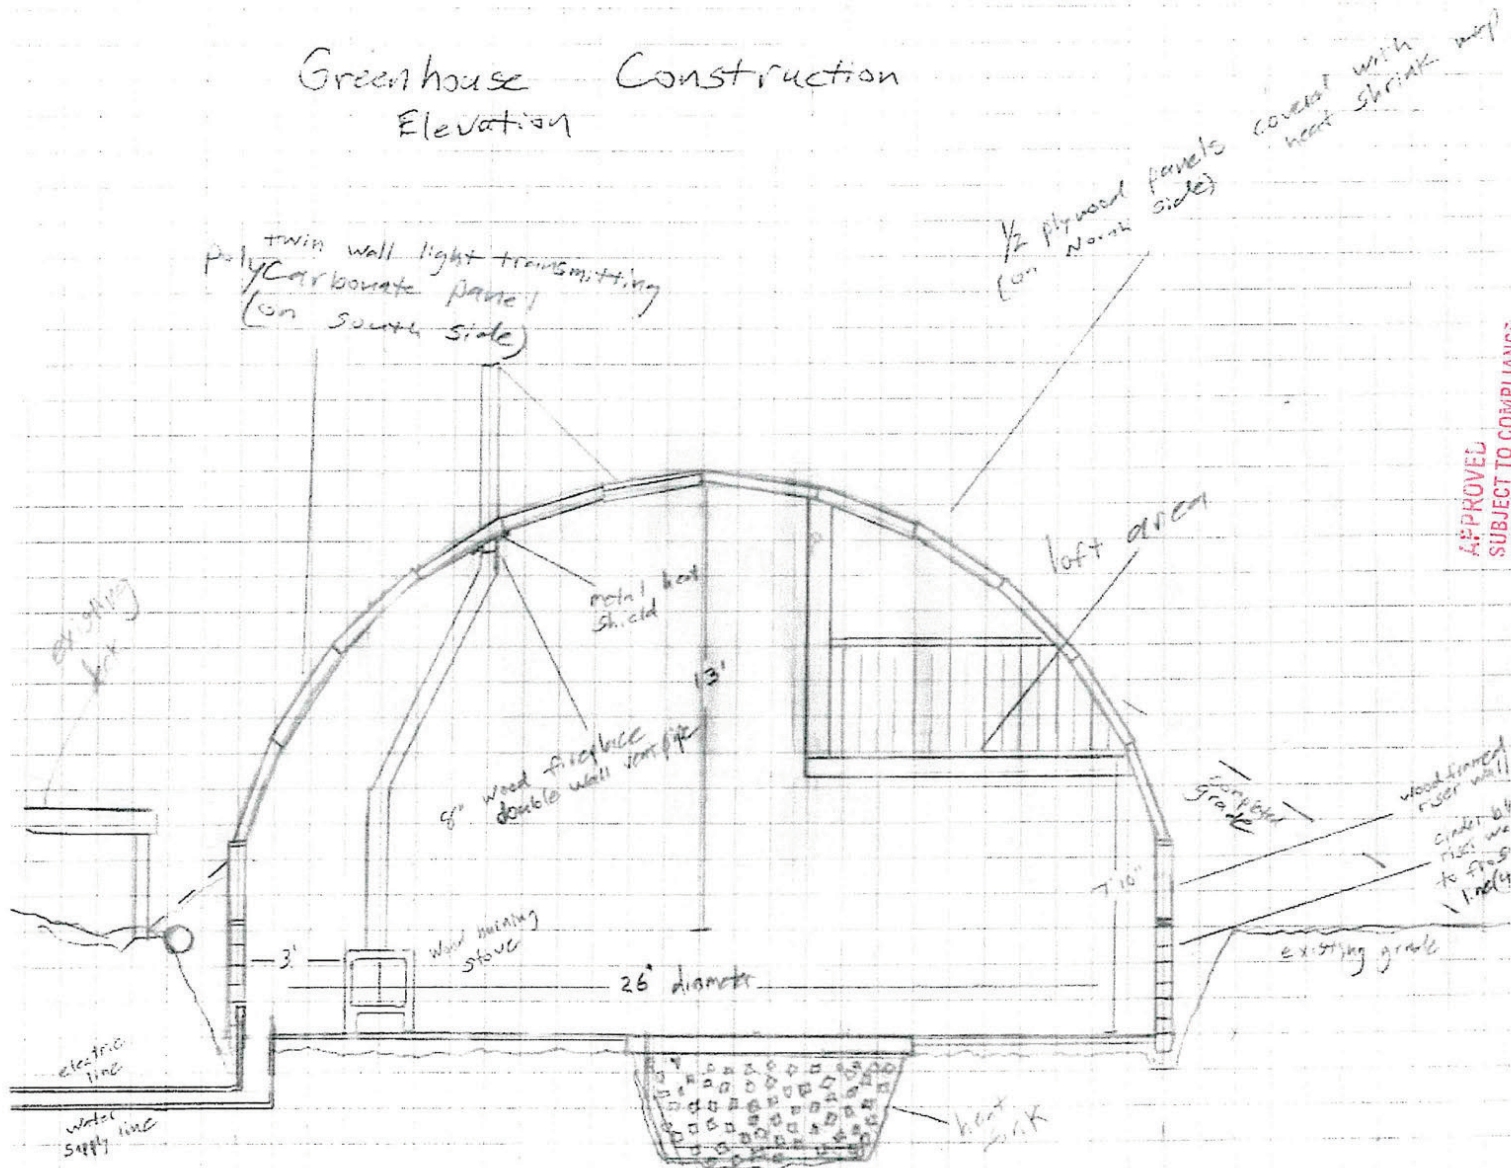 Greenhouse Construction
Elevation
twin wall light transmitting
polyCarbonate panel
(on south side)
1/2 plywood panels covered with
heat shrink wrap
(on North side)
APPROVED
SUBJECT TO COMPLIANCE
loft area
metal heat
shield
existing
13'
8" wood fireplace
double wall vent pipe
completed
grade
wood framed
riser wall
cinder
riser
to
line
7'10"
wood burning
stove
3'
26' diameter
existing grade
electric
line
water
supply line
heat
sink